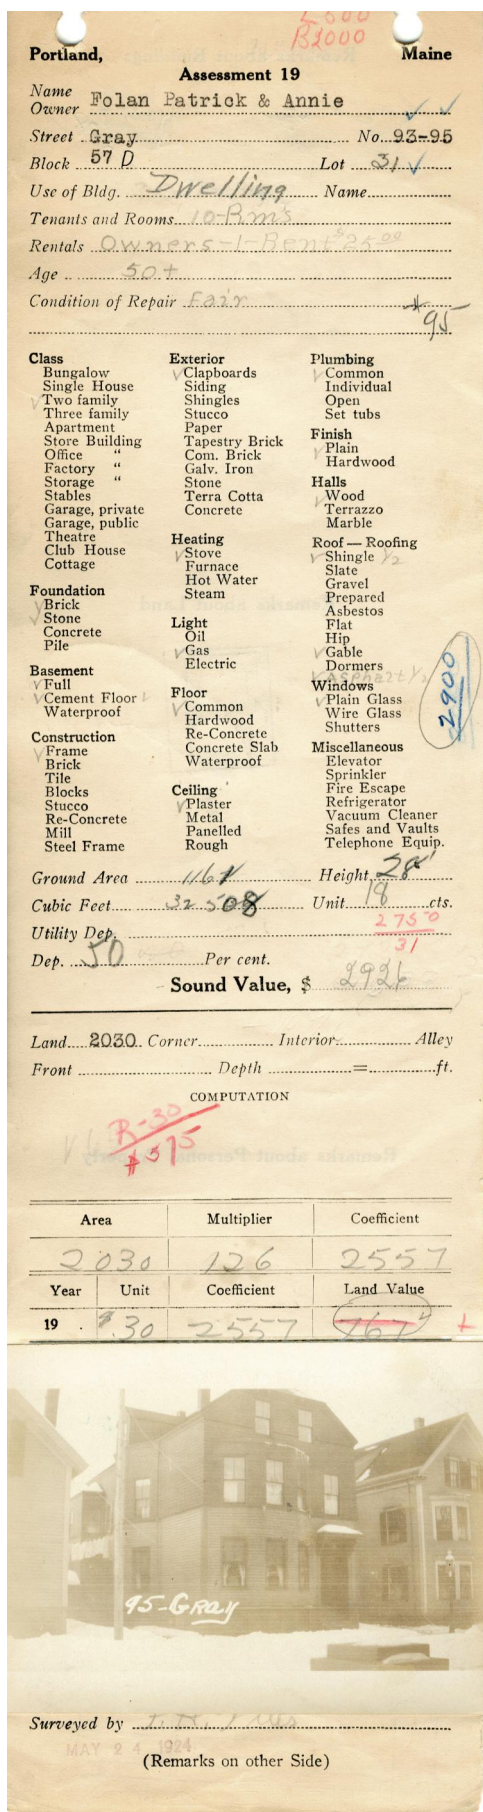 B2000
Portland, Maine
Assessment 19
Name
Owner Folan Patrick & Annie
Street Gray No. 93-95
Block 57 D Lot 31
Use of Bldg. Dwelling Name
Tenants and Rooms 10-Rm's
Rentals Owners-1-Rent $25.00
Age 50+
Condition of Repair Fair
95
Class
Bungalow
Single House
Two family
Three family
Apartment
Store Building
Office "
Factory "
Storage "
Stables
Garage, private
Garage, public
Theatre
Club House
Cottage
Foundation
Brick
Stone
Concrete
Pile
Basement
Full
Cement Floor
Waterproof
Construction
Frame
Brick
Tile
Blocks
Stucco
Re-Concrete
Mill
Steel Frame
Exterior
Clapboards
Siding
Shingles
Stucco
Paper
Tapestry Brick
Com. Brick
Galv. Iron
Stone
Terra Cotta
Concrete
Heating
Stove
Furnace
Hot Water
Steam
Light
Oil
Gas
Electric
Floor
Common
Hardwood
Re-Concrete
Concrete Slab
Waterproof
Ceiling
Plaster
Metal
Panelled
Rough
Plumbing
Common
Individual
Open
Set tubs
Finish
Plain
Hardwood
Halls
Wood
Terrazzo
Marble
Roof — Roofing
Shingle 1/2
Slate
Gravel
Prepared
Asbestos
Flat
Hip
Gable
Dormers
Asphalt 1/2
Windows
Plain Glass
Wire Glass
Shutters
Miscellaneous
Elevator
Sprinkler
Fire Escape
Refrigerator
Vacuum Cleaner
Safes and Vaults
Telephone Equip.
2900
Ground Area 1161 Height 28'
Cubic Feet 32508 Unit 18 cts.
Utility Dep. 2750
31
Dep. 50 Per cent.
Sound Value, $ 2926
Land 2030 Corner Interior Alley
Front Depth = ft.
COMPUTATION
R-30
$575
Area Multiplier Coefficient
2030 126 2557
Year Unit Coefficient Land Value
19 $.30 2557 767
95-GRAY
Surveyed by
MAY 24 1924
(Remarks on other Side)